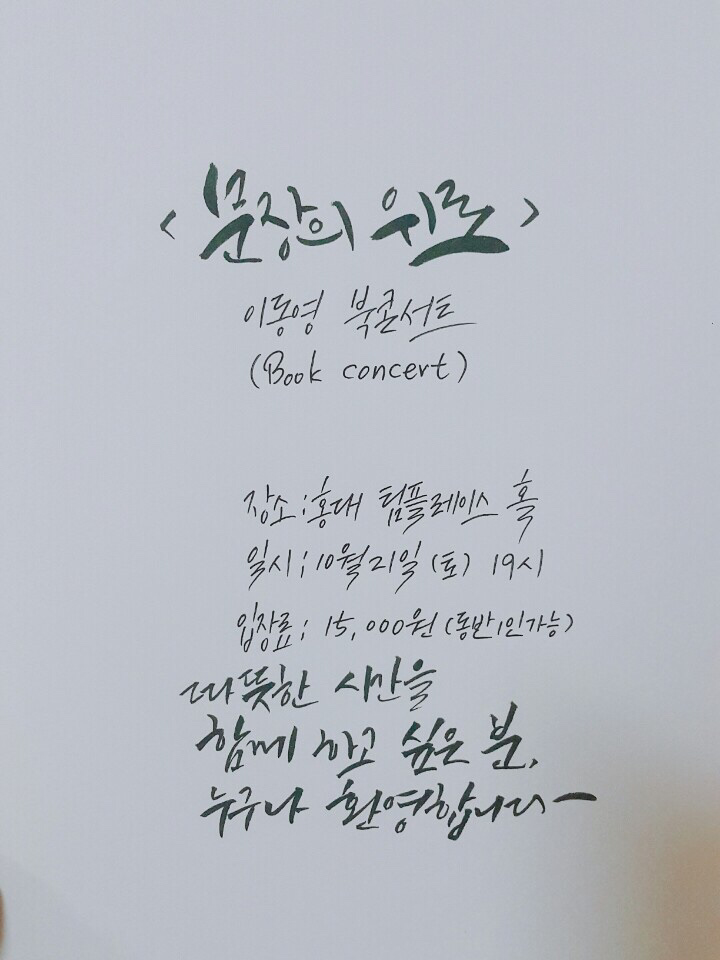 <문장의 위로>
이동영 북콘서트
(Book concert)
장소:홍대 텀플레이스 홀
일시:10월21일(토) 19시
입장료: 15,000원(동반1인가능)
따뜻한 시간을
함께 하고 싶은 분,
누구나 환영합니다-